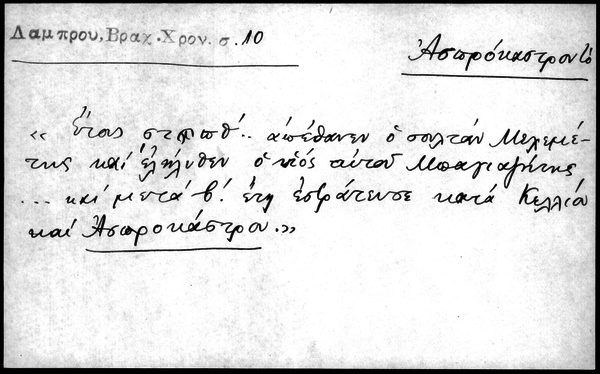 Λαμπρου, Βραχ. Χρον. σ. 10
Ἀσπρόκαστρον τὸ
« Ἔτους ͵ϛ ϡ πθʹ.. ἀπέθανεν ὁ σουλτὰν Μεχεμέ-
της καὶ ἐλήλυθεν ὁ υἱός αὐτοῦ Μπαγιαζήτης
... καὶ μετὰ βʹ. ἔτη ἐστράτευσε κατὰ Κελλίου
καὶ Ἀσπροκάστρου.»